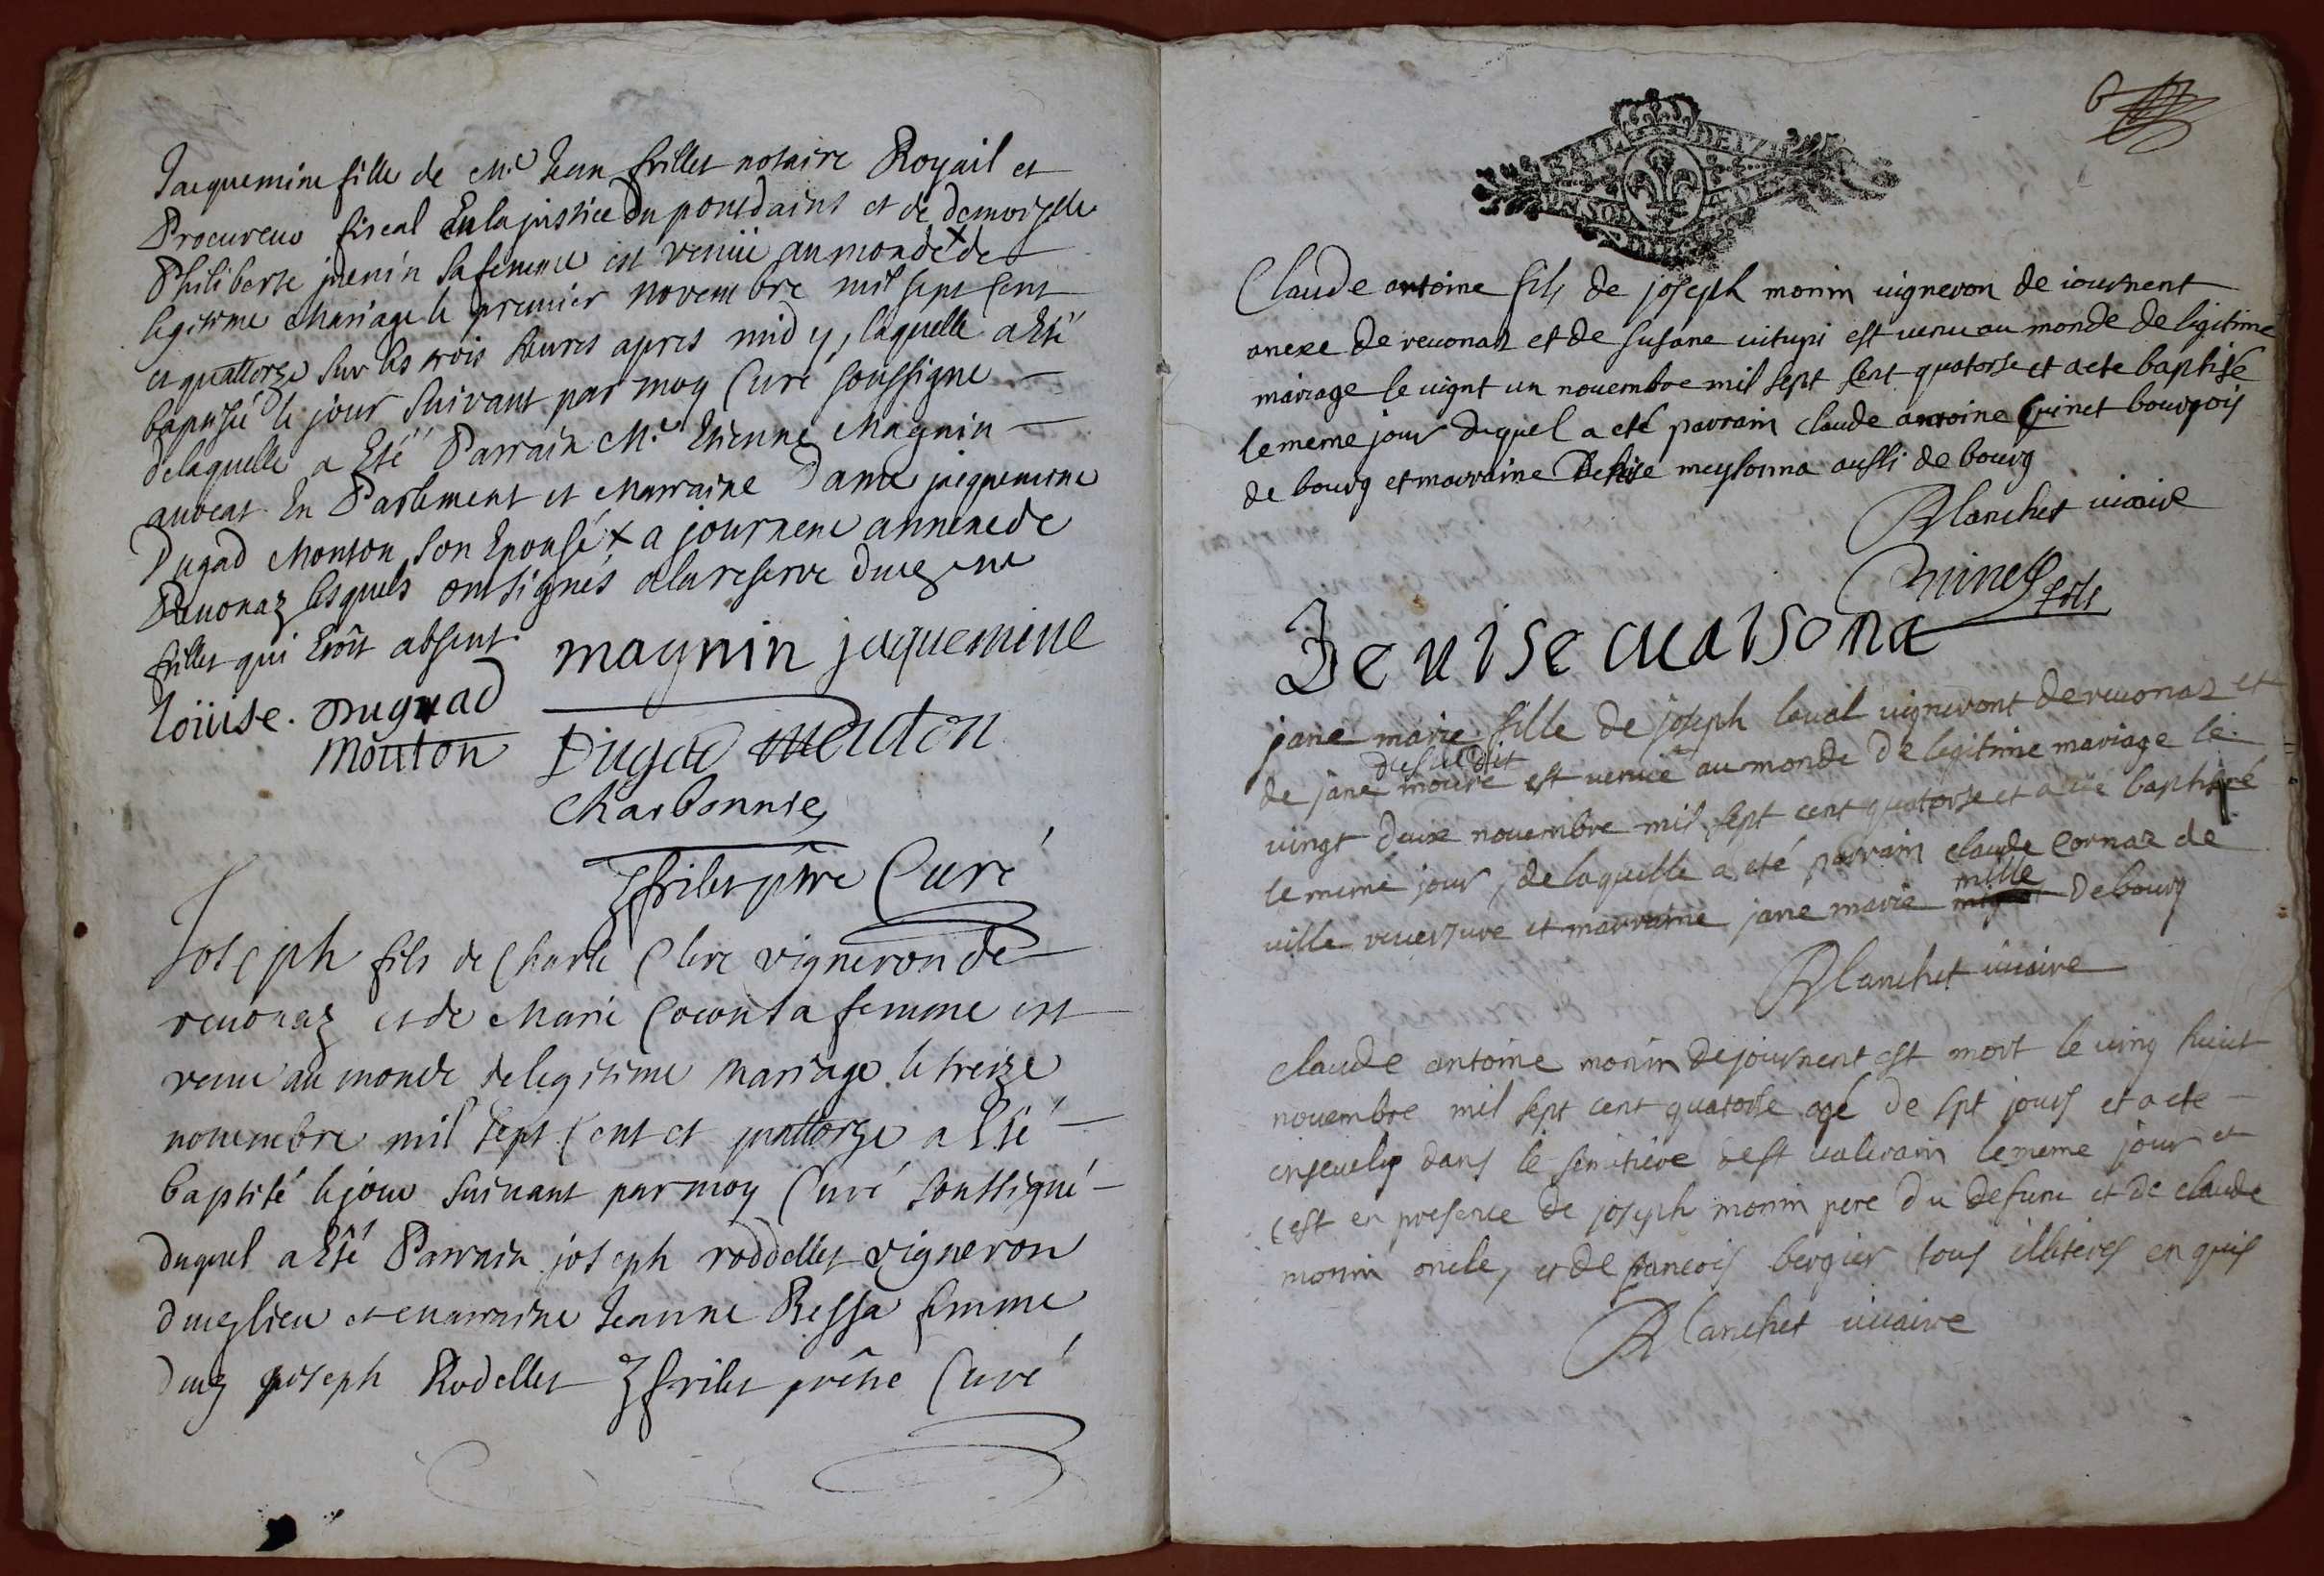 Jacquemine fille de Mre Jean frillet notaire Royail et
Procureur fiscal En la justice Du pont dains et de demoiselle
Philiberte jdenin sa femme est venüe au monde x de
legitime Mariage le premier novembre mil sept Cent
et quattorze sur les trois heures apres midy, laquelle a Esté
baptisée le jour suivant par moy Curé soussigne
delaquelle a Esté Parrain Mre Etienne Magnin
auocat En Parlement et Marraine Dame jacquemine
Dugad Monton son Epouse x a journene annexe de
Reuonaz lesquels ont signés a la reserve ducz sr
frillet qui Etoit absent.
magnin jaquemine
Loüise. Duguad
Mouton
Dugad mouton
Charbonnie
frilet ptre Curé
Joseph fils de Charle Clere vigneron de
reuonaz et de Marie Cocon sa femme est
venu au monde de legitime Mariage le treize
nouembre mil sept Cent et quattorze a Esté
baptisé le jour suivant par moy Curé soussigné
duquel a Esté Parrain joseph roddellet vigneron
ducz lieu et Marraine Jeanne Ressa femme
ducz joseph Rodellet frilet prêtre Curé
6
Claude antoine fils de joseph monin uigneron de iournent
anexe de reuonaz et de susane uitupi est uenu au monde de legitime
mariage le uignt un nouembre mil sept sent quatorse et a ete baptisé
le meme jour duquel a eté parrain claude antoine Quinet bourgois
de bourg et marraine Denise meysonna aussi de bourg
Blanchet uicaire
Quinet fils
Denise maisona
jane marie fille de joseph laual uigneront de reuonaz et
de jane moure est uenue au monde de legitime mariage le
dusuedit
uingt deuxe nouembre mil sept cent quatorse et a ete baptisé
le meme jour, de laquelle a eté parrain claude Cornaz de
mille
uille reuersure et marraine jane marie de bourg
Blanchet uicaire
claude antoine monin de journent est mort le uing huict
nouembre mil sept cent quatorse agé de spt jours et a ete
enseuely dans le semitiere de st ualerain le meme jour et
cest en presence de joseph monin pere du defunc et de claude
monin oncle, et de francois bergier tous illiteres enquis
Blanchet uicaire